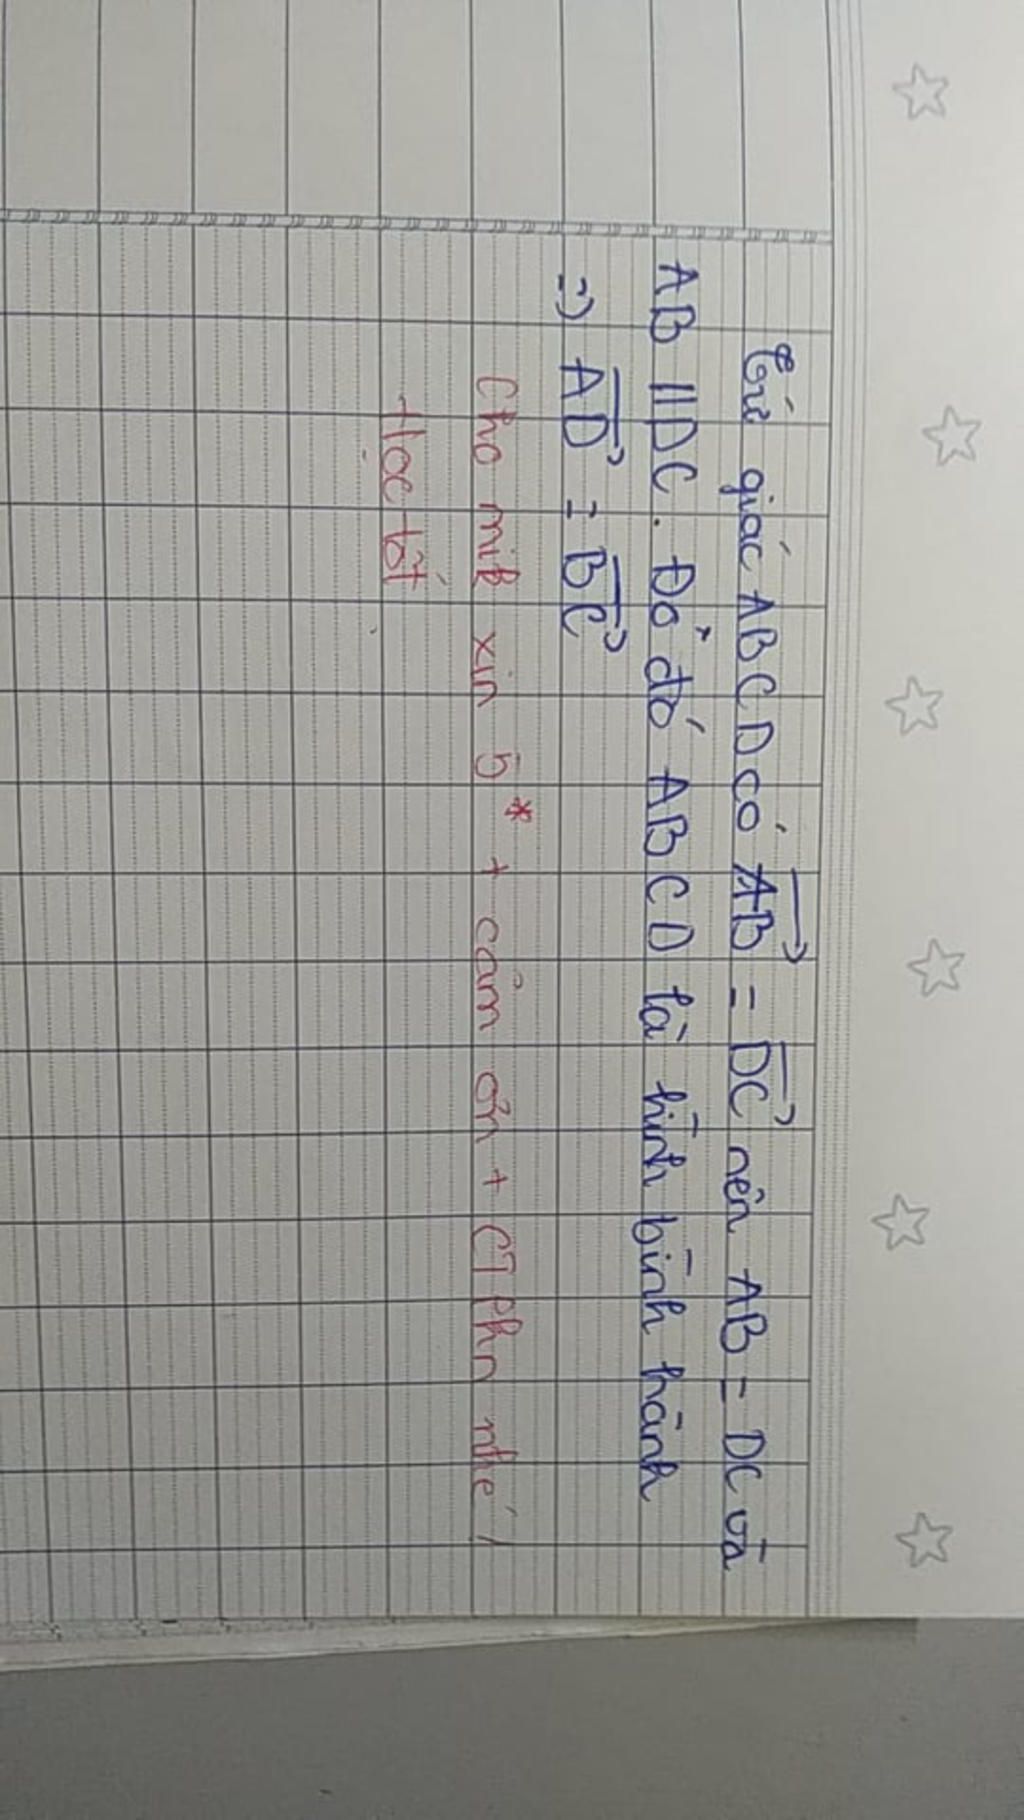 Tứ giác ABCD có AB→ = DC→ nên AB = DC và
AB // DC. Do đó ABCD là hình bình hành
=> AD→ = BC→
Cho mik xin 5* + cảm ơn + CTLHN nhé!
Học tốt